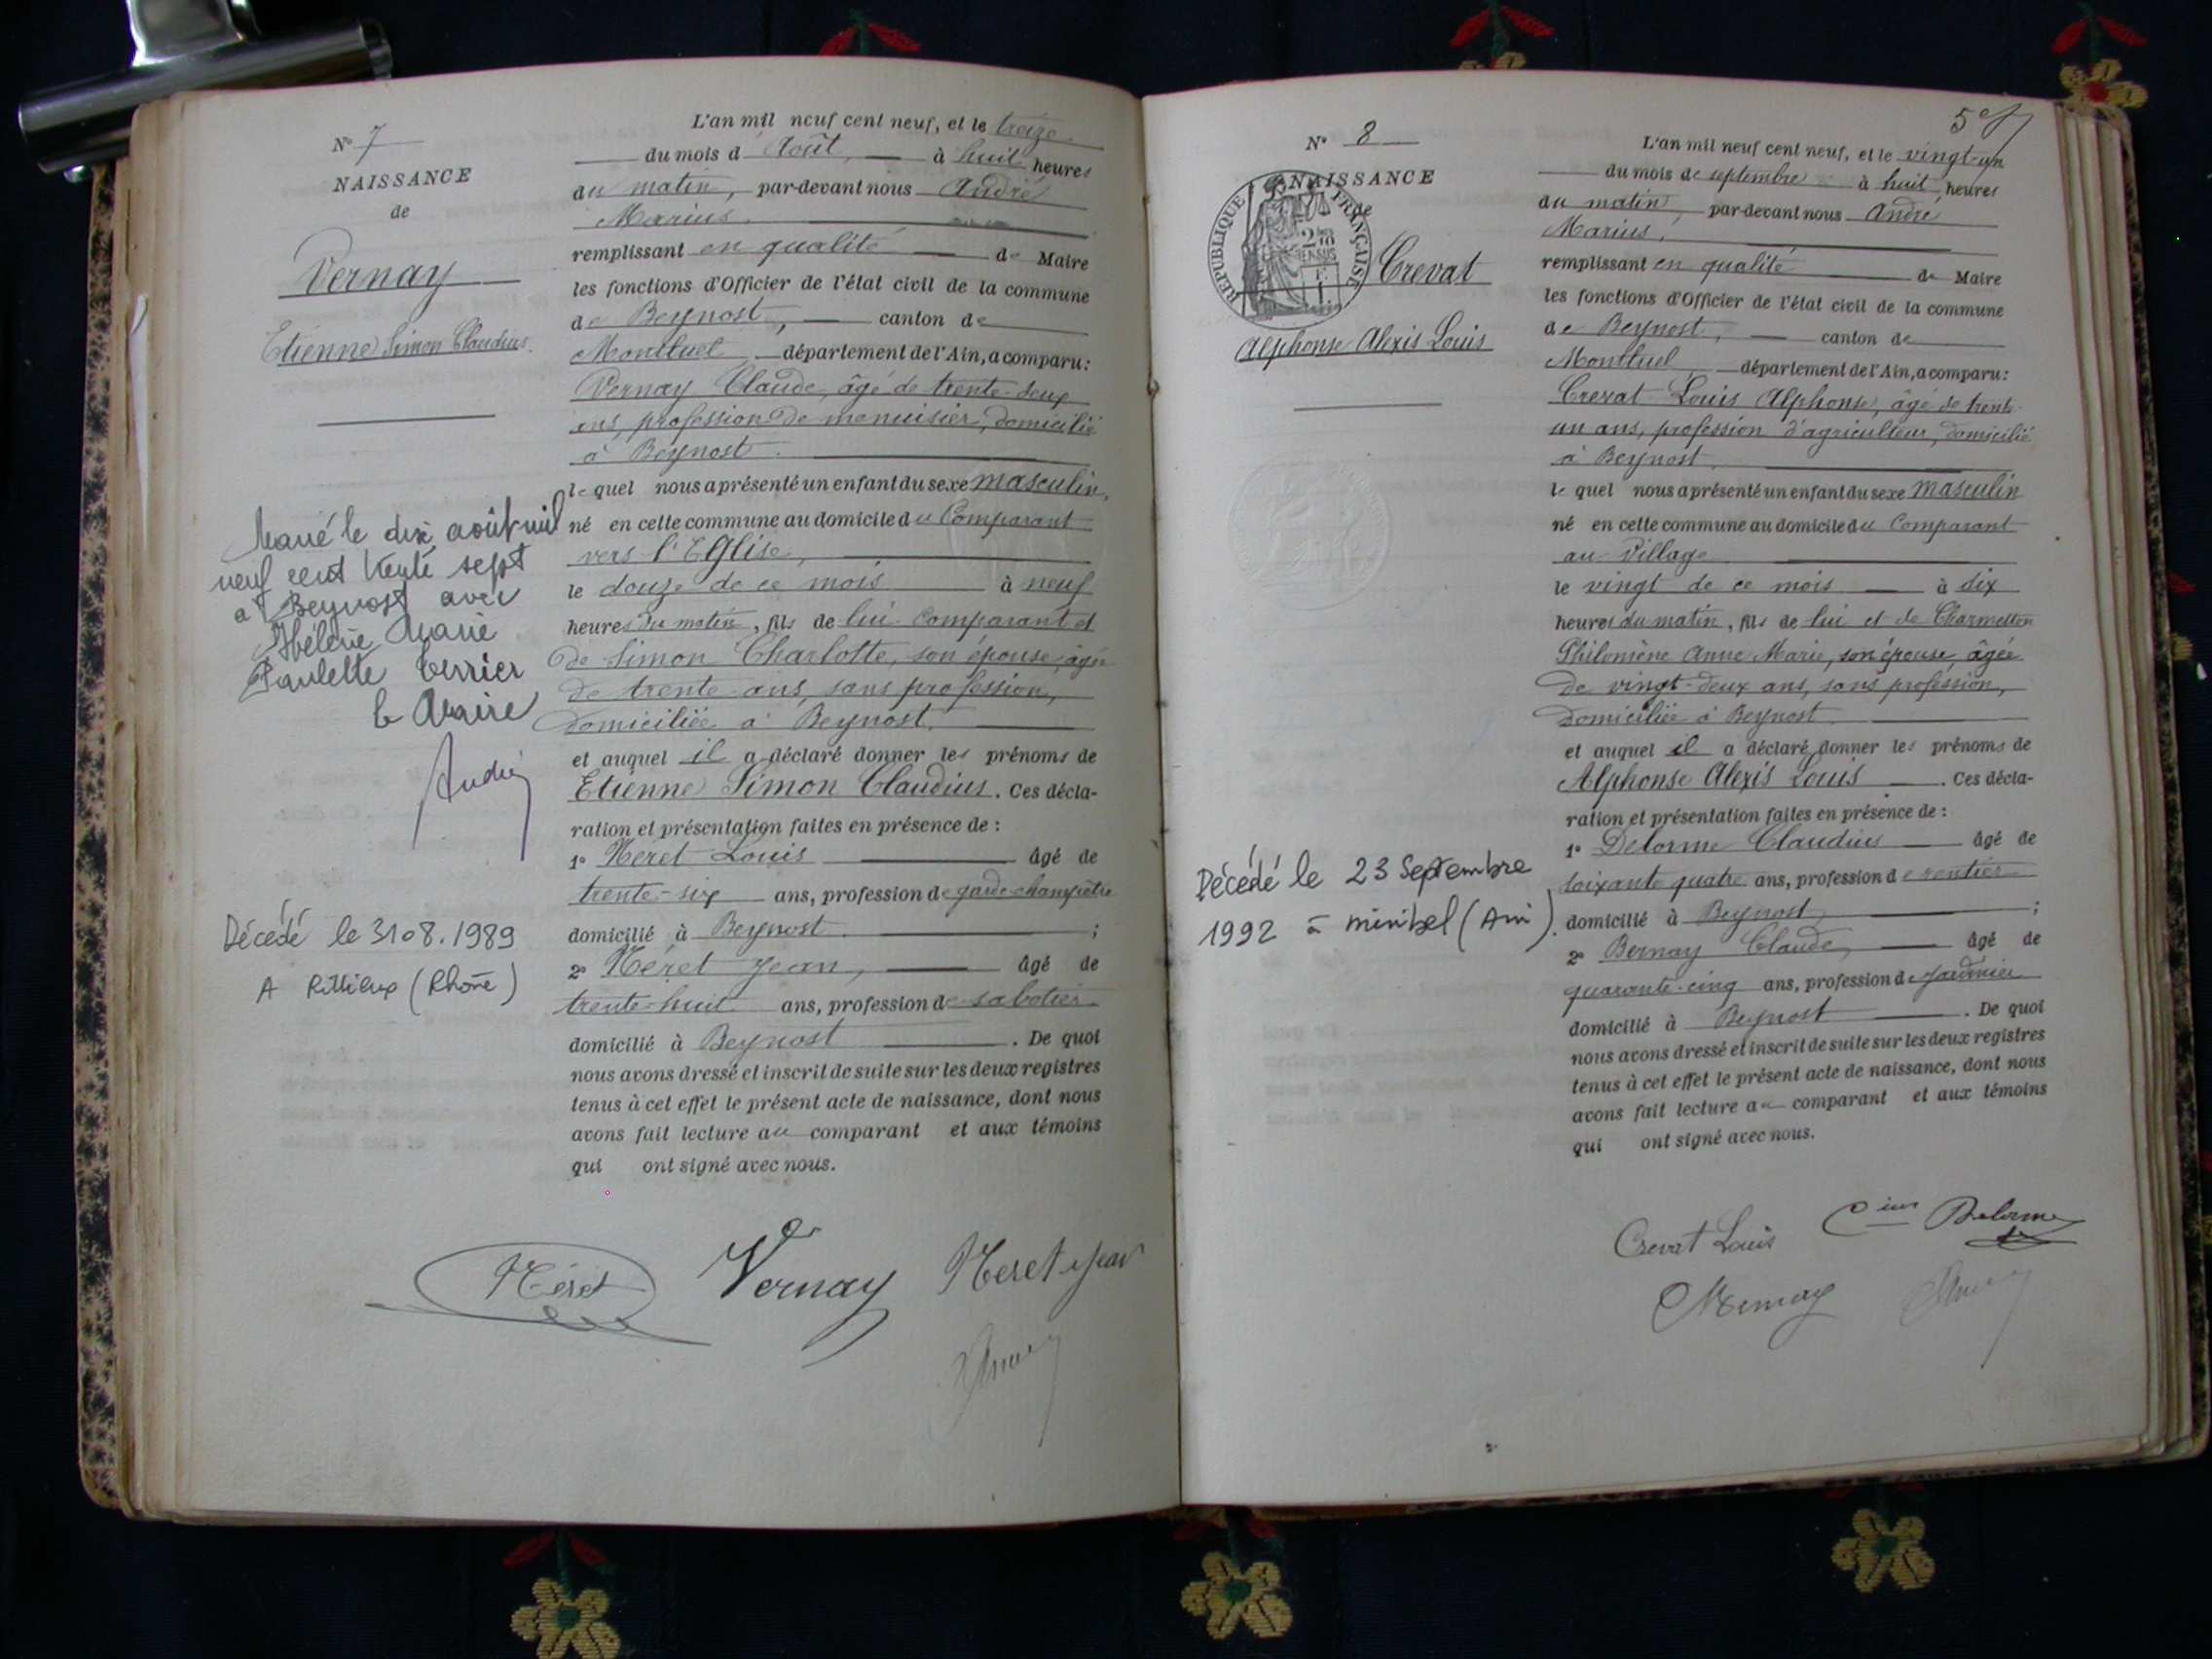 N° 7
NAISSANCE
de
Vernay
Etienne Simon Claudius
Marié le dix août mil
neuf cent trente sept
à Beynost avec
Hélène Marie
Paulette Terrier
le Maire
André
Décédé le 31 08.1989
A Rillieux (Rhône)
L'an mil neuf cent neuf, et le treize
du mois d'Août, à huit heures
du matin, par-devant nous André
Marius,
remplissant en qualité de Maire
les fonctions d'Officier de l'état civil de la commune
de Beynost, canton de
Montluel département de l'Ain, a comparu:
Vernay Claude, âgé de trente-deux
ans, profession de menuisier, domicilié
à Beynost.
lequel nous a présenté un enfant du sexe masculin,
né en cette commune au domicile du Comparant
vers l'Eglise,
le douze de ce mois à neuf
heures du matin, fils de lui comparant et
de Simon Charlotte, son épouse, âgée
de trente ans, sans profession,
domiciliée à Beynost.
et auquel il a déclaré donner les prénoms de
Etienne Simon Claudius. Ces décla-
ration et présentation faites en présence de :
1° Néret Louis âgé de
trente-six ans, profession de garde-champêtre
domicilié à Beynost ;
2° Néret Jean, âgé de
trente-huit ans, profession de sabotier
domicilié à Beynost. De quoi
nous avons dressé et inscrit de suite sur les deux registres
tenus à cet effet le présent acte de naissance, dont nous
avons fait lecture au comparant et aux témoins
qui ont signé avec nous.
Néret Vernay Neret Jean
N° 8
NAISSANCE
de
RÉPUBLIQUE FRANÇAISE
Crevat
Alphonse Alexis Louis
Décédé le 23 Septembre
1992 à Miribel (Ain).
L'an mil neuf cent neuf, et le vingt-un
du mois de septembre à huit heures
du matin, par-devant nous André
Marius,
remplissant en qualité de Maire
les fonctions d'Officier de l'état civil de la commune
de Beynost, canton de
Montluel département de l'Ain, a comparu:
Crevat Louis Alphonse, âgé de trente-
un ans, profession d'agriculteur, domicilié
à Beynost,
lequel nous a présenté un enfant du sexe masculin
né en cette commune au domicile du Comparant
au Village
le vingt de ce mois à six
heures du matin, fils de lui et de Charmetton
Philomène Anne Marie, son épouse, âgée
de vingt-deux ans, sans profession,
domiciliée à Beynost.
et auquel il a déclaré donner les prénoms de
Alphonse Alexis Louis. Ces décla-
ration et présentation faites en présence de :
1° Delorme Claudius âgé de
soixante quatre ans, profession de rentier
domicilié à Beynost, ;
2° Bernay Claude, âgé de
quarante-cinq ans, profession de jardinier
domicilié à Beynost. De quoi
nous avons dressé et inscrit de suite sur les deux registres
tenus à cet effet le présent acte de naissance, dont nous
avons fait lecture au comparant et aux témoins
qui ont signé avec nous.
Crevat Louis Cius Delorme